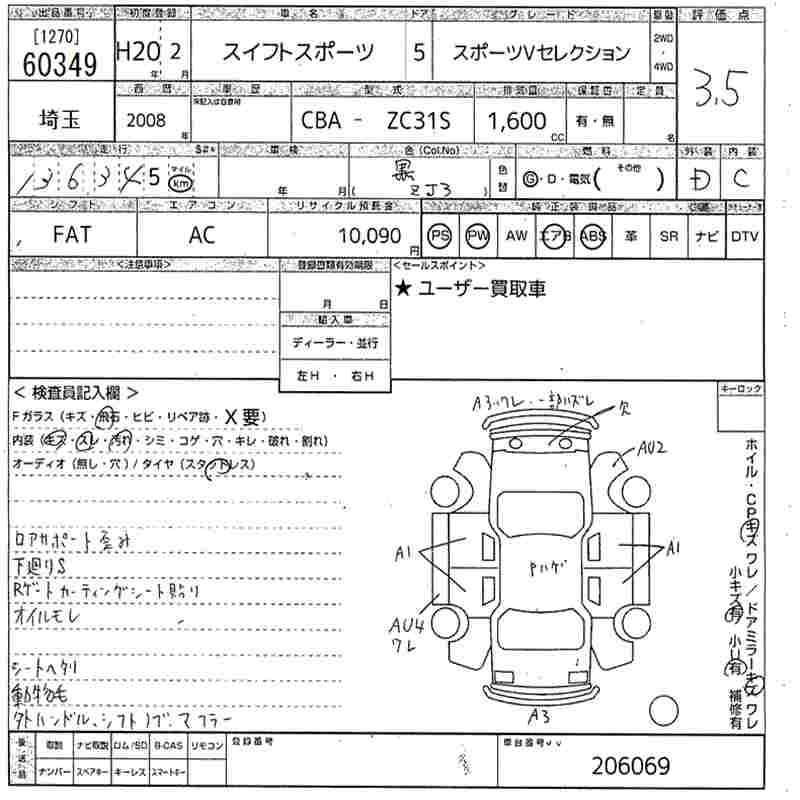 出品番号 初度登録 車名 ドア グレード 駆動 評価点
[1270] 60349 H20 年 2 月 スイフトスポーツ 5 スポーツVセレクション 2WD・4WD 3.5
西暦 車歴 型式 排気量 保証書 定員
埼玉 2008 年 未記入は自家用 CBA - ZC31S 1,600 CC 有・無 名
走行 車検 色(Col.No) 燃料 外装 内装
136345 マイル km 年 月 黒 ( ZJ3 ) 色替 G・D・電気( その他 ) D C
シフト エアコン リサイクル預託金 純正装備品
FAT AC 10,090 円 PS PW AW エアB ABS 革 SR ナビ DTV
<注意事項> 登録書類有効期限 <セールスポイント>
月 日 ★ ユーザー買取車
輸入車
ディーラー・並行
左H ・ 右H
< 検査員記入欄 > キーロック
Fガラス(キズ・飛石・ヒビ・リペア跡・X要)
内装(キズ・スレ・汚れ・シミ・コゲ・穴・キレ・破れ・割れ)
オーディオ(無し・穴)/タイヤ(スタッドレス)
ロアサポート歪み
下廻りS
Rゲートカーティングシート貼り
オイルモレ
シートヘタリ
動物毛
タトハンドル、シフトノブ、マフラー
A3ワレ・一部ハズレ
穴
AU2
A1
A1
Pハゲ
AU4
ワレ
A3
ホイル・CPキズワレ/ドアミラーキズワレ
小キズ有 小U有 補修有
後送品 取説 ナビ取説 ロム/SD B-CAS リモコン 登録番号 車台番号
ナンバー スペアキー キーレス スマートキー 206069